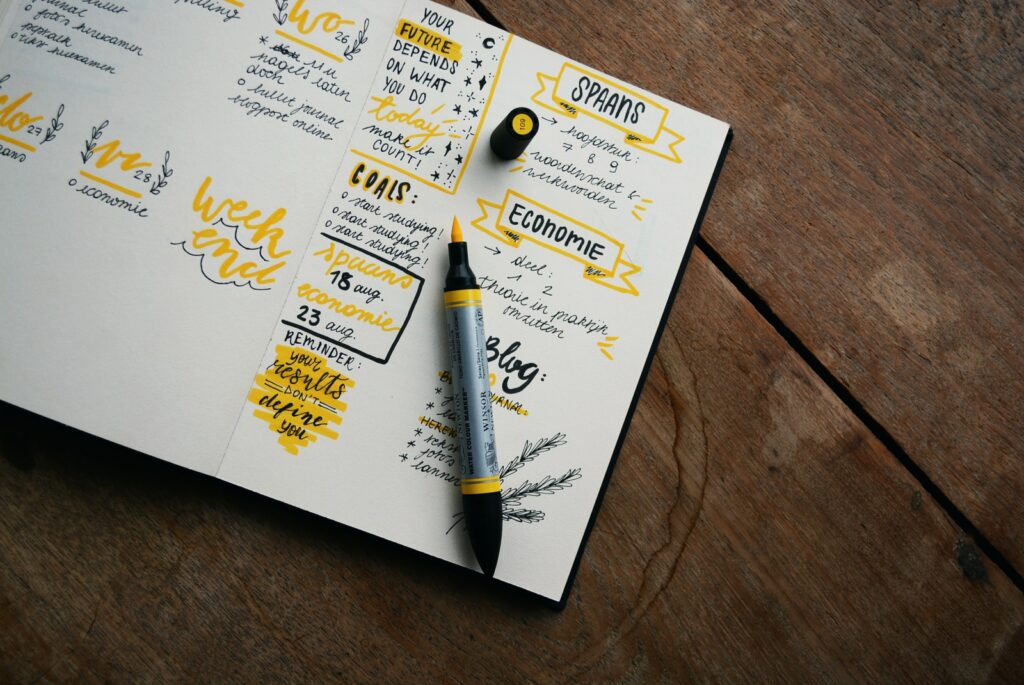 foto's herexamen
herexamen
wo 26
nagels laten
doen
o bullet journal
blogpost online
27
vr 28
o economie
week
end
YOUR
FUTURE
DEPENDS
ON WHAT
YOU DO
today
make it
COUNT!
GOALS:
o start studying!
o start studying!
o start studying!
spaans
18 aug.
economie
23 aug.
REMINDER:
your
results
DON'T
define
you
SPAANS
→ hoofdstuk:
7 8 9
woordenschat &
werkwoorden
ECONOMIE
→ deel:
1 2
theorie in praktijk
omzetten
Blog:
109
WATER COLOUR MARKER
WINSOR